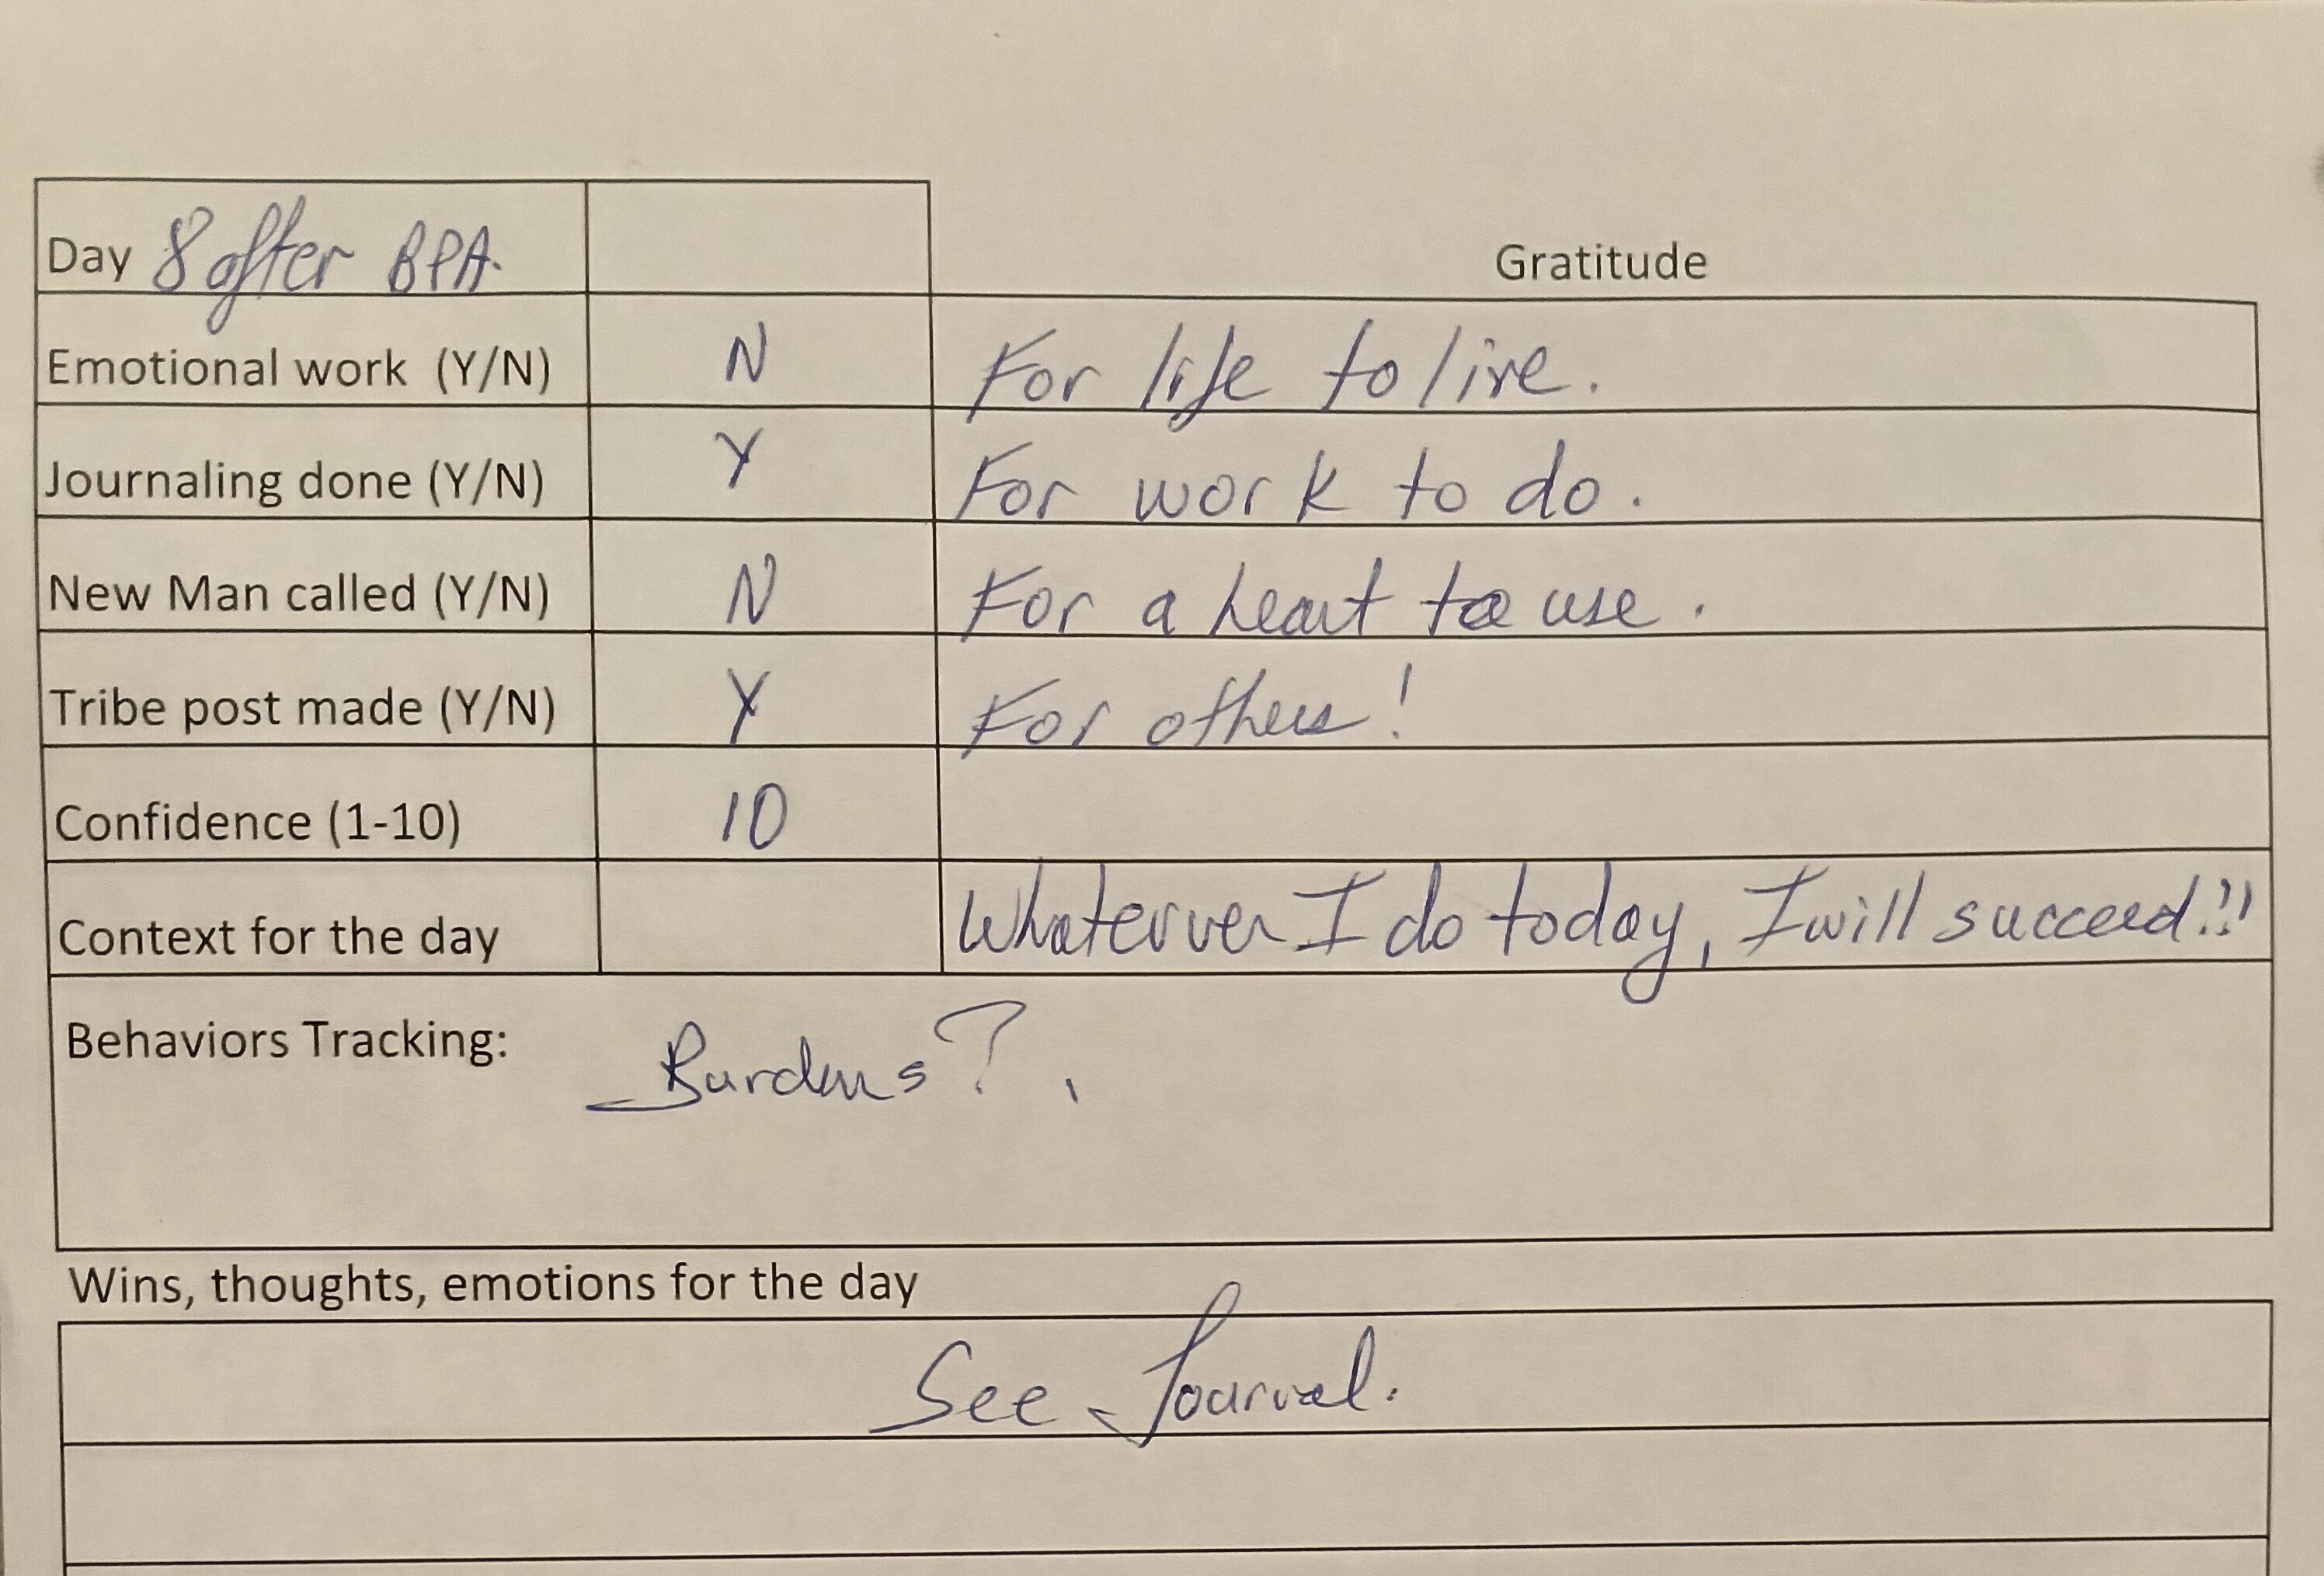 Day 8 after BPA.
Gratitude
Emotional work (Y/N) N For life to live.
Journaling done (Y/N) Y For work to do.
New Man called (Y/N) N For a heart to use.
Tribe post made (Y/N) Y For others!
Confidence (1-10) 10
Context for the day Whaterver I do today, I will succeed!!
Behaviors Tracking: Burdens?.
Wins, thoughts, emotions for the day
See Journal.